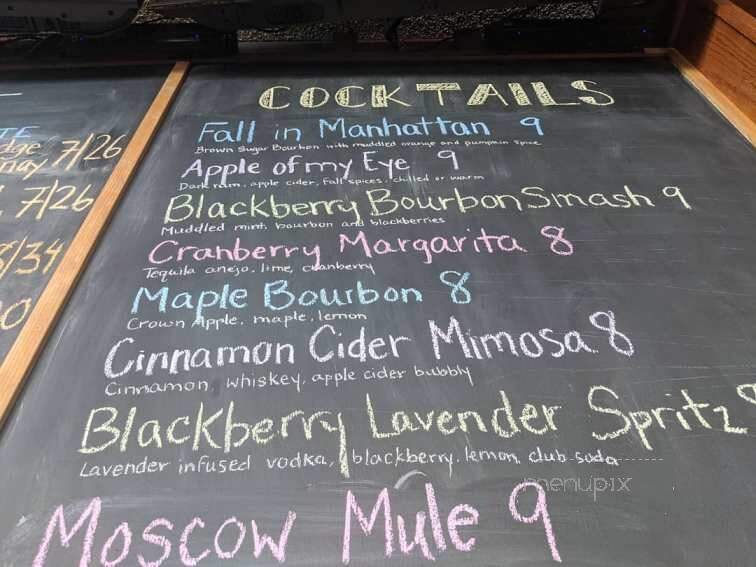 COCKTAILS
Fall in Manhattan 9
Brown Sugar Bourbon with muddled orange and pumpkin spice
Apple of my Eye 9
Dark rum, apple cider, Fall spices, chilled or warm
Blackberry Bourbon Smash 9
Muddled mint, bourbon and blackberries
Cranberry Margarita 8
Tequila anejo, lime, cranberry
Maple Bourbon 8
Crown Apple, maple, lemon
Cinnamon Cider Mimosa 8
Cinnamon whiskey, apple cider bubbly
Blackberry Lavender Spritz
Lavender infused vodka, blackberry, lemon, club soda
Moscow Mule 9
7/26
7/26
/34
menupix